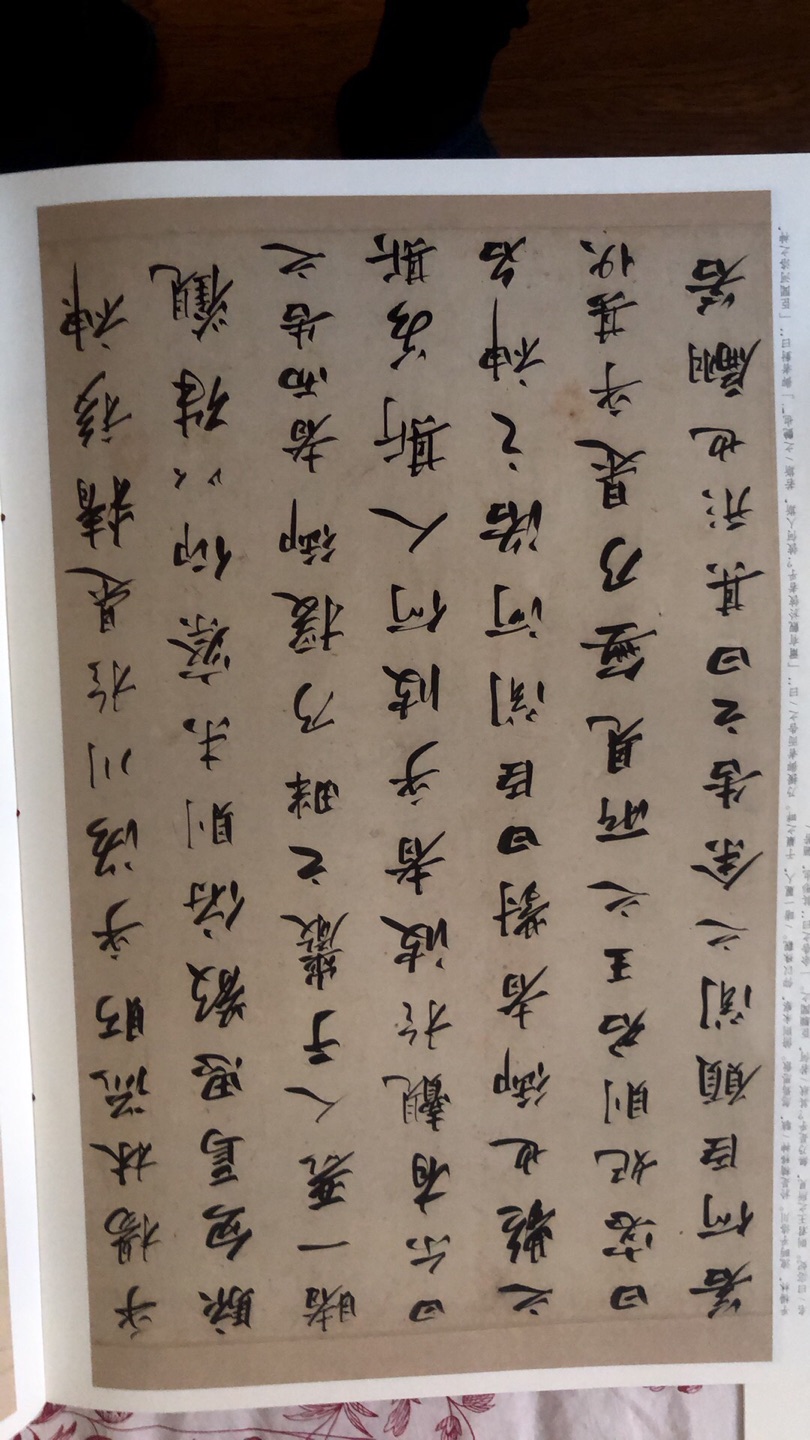 乎楊林流眄乎洛川於是精移神
駭忽焉思散俯則未察仰以殊觀
睹一麗人于巖之畔乃援御者而告之
曰尔有覿於彼者乎彼何人斯若斯
之艷也御者對曰臣聞河洛之神名
曰宓妃則君王之所見無乃是乎其狀
若何臣願聞之余告之曰其形也翩若